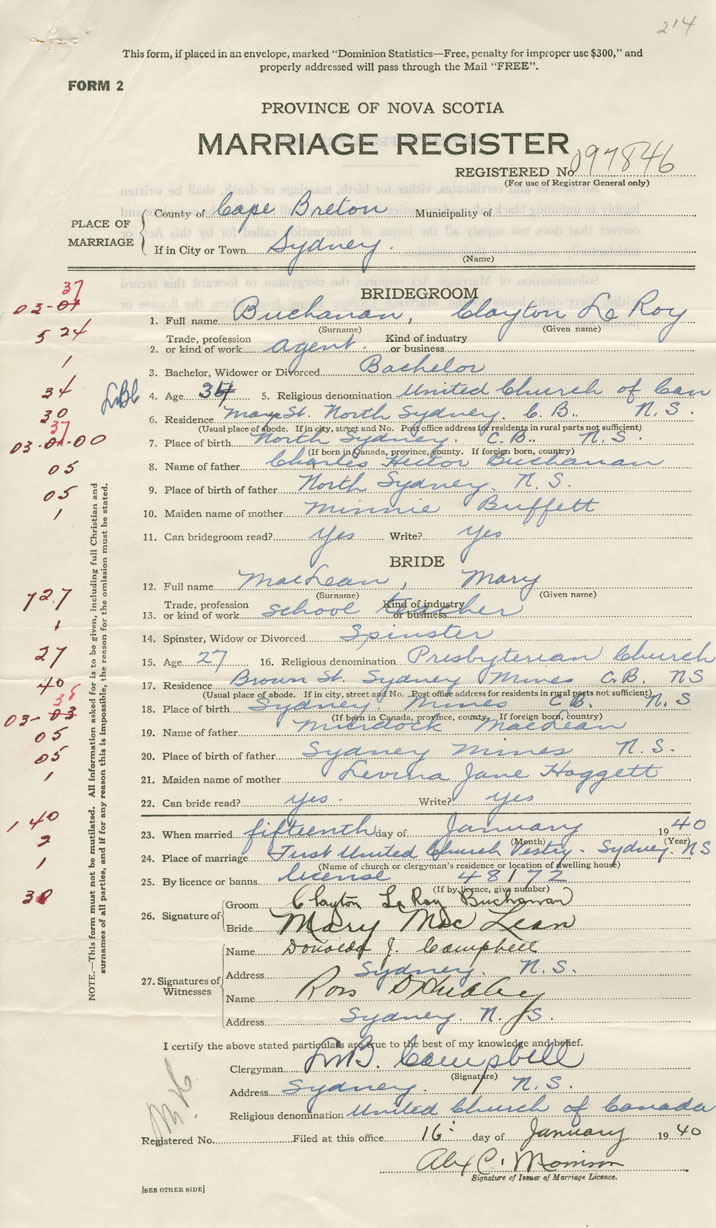 214
This form, if placed in an envelope, marked "Dominion Statistics—Free, penalty for improper use $300," and
properly addressed will pass through the Mail "FREE".
FORM 2
PROVINCE OF NOVA SCOTIA
MARRIAGE REGISTER
REGISTERED No. 097846
(For use of Registrar General only)
PLACE OF MARRIAGE
County of Cape Breton Municipality of
If in City or Town Sydney.
(Name)
BRIDEGROOM
37
03-01
1. Full name Buchanan, Clayton Le Roy
(Surname) (Given name)
5 24
2. Trade, profession or kind of work agent. Kind of industry or business
1
3. Bachelor, Widower or Divorced Bachelor
34
4. Age 34 5. Religious denomination United Church of Can
30
6. Residence Mary St. North Sydney. C. B. N. S.
(Usual place of abode. If in city, street and No. Post office address for residents in rural parts not sufficient)
37
03-01-00
7. Place of birth North Sydney. C. B.. N. S.
(If born in Canada, province, county. If foreign born, country)
05
8. Name of father Charles Hector Buchanan
05
9. Place of birth of father North Sydney. N. S.
1
10. Maiden name of mother Minnie Buffett
11. Can bridegroom read? Yes Write? Yes
BRIDE
12. Full name MacLean, Mary
(Surname) (Given name)
727
13. Trade, profession or kind of work school teacher Kind of industry or business
1
14. Spinster, Widow or Divorced Spinster
27
15. Age 27 16. Religious denomination Presbyterian Church
40
17. Residence Brown St. Sydney Mines C. B. NS
(Usual place of abode. If in city, street and No. Post office address for residents in rural parts not sufficient)
03-03
18. Place of birth Sydney Mines C B. N. S
(If born in Canada, province, county. If foreign born, country)
05
19. Name of father Murdock MacLean
05
20. Place of birth of father Sydney Mines N. S.
1
21. Maiden name of mother Levina Jane Haggett
22. Can bride read? yes. Write? yes
1 40
23. When married fifteenth day of January 1940
(Month) (Year)
2
24. Place of marriage First United Church Vestry - Sydney. NS
(Name of church or clergyman's residence or location of dwelling house)
1
25. By licence or banns license 48172
(If by licence, give number)
30
26. Signature of
Groom Clayton Le Roy Buchanan
Bride Mary MacLean
27. Signatures of Witnesses
Name Donald J. Campbell
Address Sydney. N. S.
Name Ross
Address Sydney. N. S.
I certify the above stated particulars are true to the best of my knowledge and belief.
Clergyman Campbell
(Signature)
Address Sydney. N. S.
Religious denomination United Church of Canada
Registered No. Filed at this office 16 day of January 1940
Alex C. Morrison
Signature of Issuer of Marriage Licence.
[SEE OTHER SIDE]
NOTE.—This form must not be mutilated. All information asked for is to be given, including full Christian and
surnames of all parties, and if for any reason this is impossible, the reason for the omission must be stated.